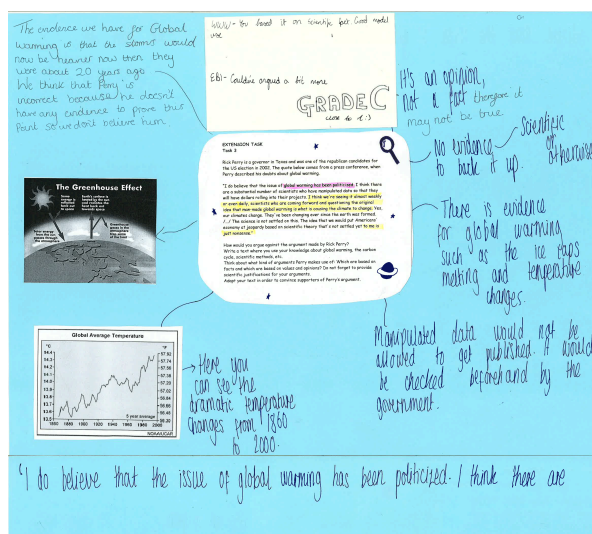 The evidence we have for Global
Warming is that the storms would
now be heavier now then they
were about 20 years ago
We think that Perry is
incorrect because he doesn't
have any evidence to prove this
point so we don't believe him.
WWW- You based it on scientific fact. Good model
use
EBI- Couldn't argued a bit more
GRADE C
close to :)
It's an opinion,
not a fact therefore it
may not be true.
EXTENSION TASK
Task 3
Rick Perry is a governor in Texas and was one of the republican candidates for
the US election in 2012. The quote below comes from a press conference, when
Perry described his doubts about global warming.
"I do believe that the issue of global warming has been politicized. I think there
are a substantial number of scientists who have manipulated data so that they
will have dollars rolling into their projects. I think we're seeing it almost weekly
or even daily, scientists who are coming forward and questioning the original
idea that man-made global warming is what is causing the climate to change. Yes,
our climates change. They've been changing ever since the earth was formed.
/.../ The science is not settled on this. The idea that we would put Americans'
economy at jeopardy based on scientific theory that's not settled yet to me is
just nonsense."
How would you argue against the argument made by Rick Perry?
Write a text where you use your knowledge about global warming, the carbon
cycle, scientific methods, etc.
Think about what kind of arguments Perry makes use of: Which are based on
facts and which are based on values and opinions? Do not forget to provide
scientific justifications for your arguments.
Adapt your text in order to convince supporters of Perry's argument.
No evidence
to back it up.
Scientific
or otherwise
There is evidence
for global warming
such as the ice caps
melting and temperature
changes.
Manipulated data would not be
allowed to get published. It would
be checked beforehand by the
government.
The Greenhouse Effect
Global Average Temperature
°C
°F
14.4
14.3
14.2
14.1
14.0
13.9
13.8
13.7
13.6
13.5
57.92
57.74
57.56
57.38
57.20
57.02
56.84
56.66
56.48
56.30
5 year average
1860 1880 1900 1920 1940 1960 1980 2000
NOAA/UCAR
Here you
can see the
dramatic temperature
changes from 1860
to 2000.
'I do believe that the issue of global warming has been politicized. I think there are